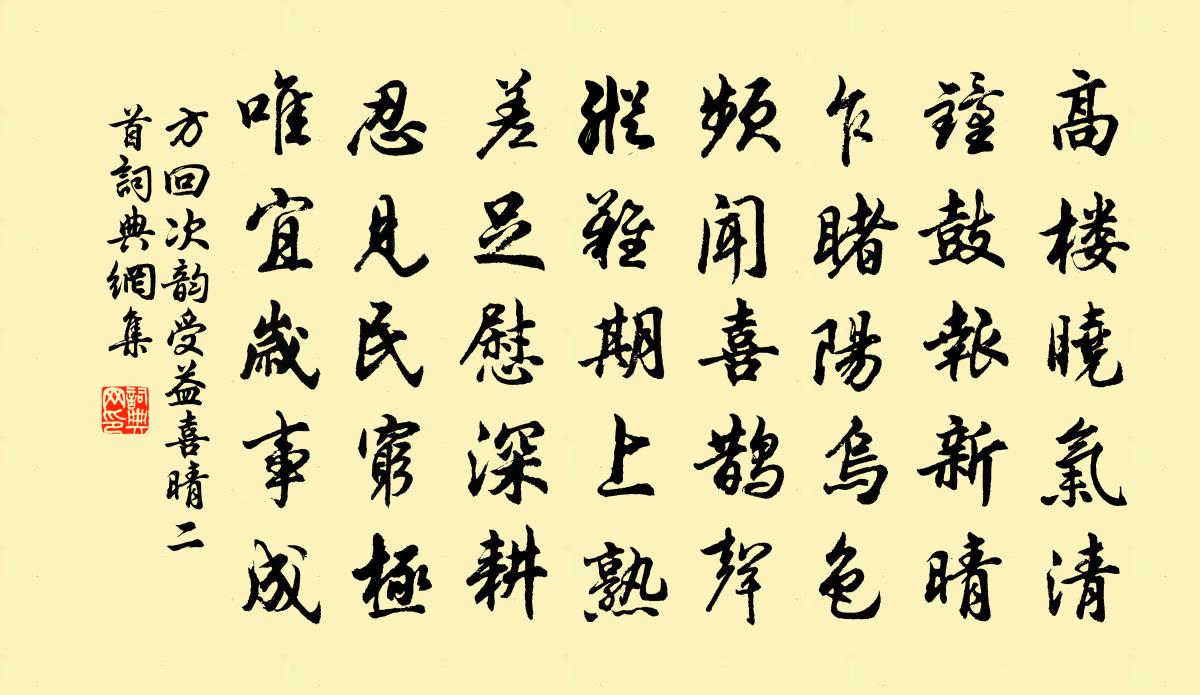 高楼曉氣清
鐘鼓報新晴
乍睹陽烏色
頻聞喜鵲聲
縱難期上熟
差足慰深耕
忍見民窮極
唯宜歲事成
方回次韵受益喜晴二
首詞典網集
詞典
网印